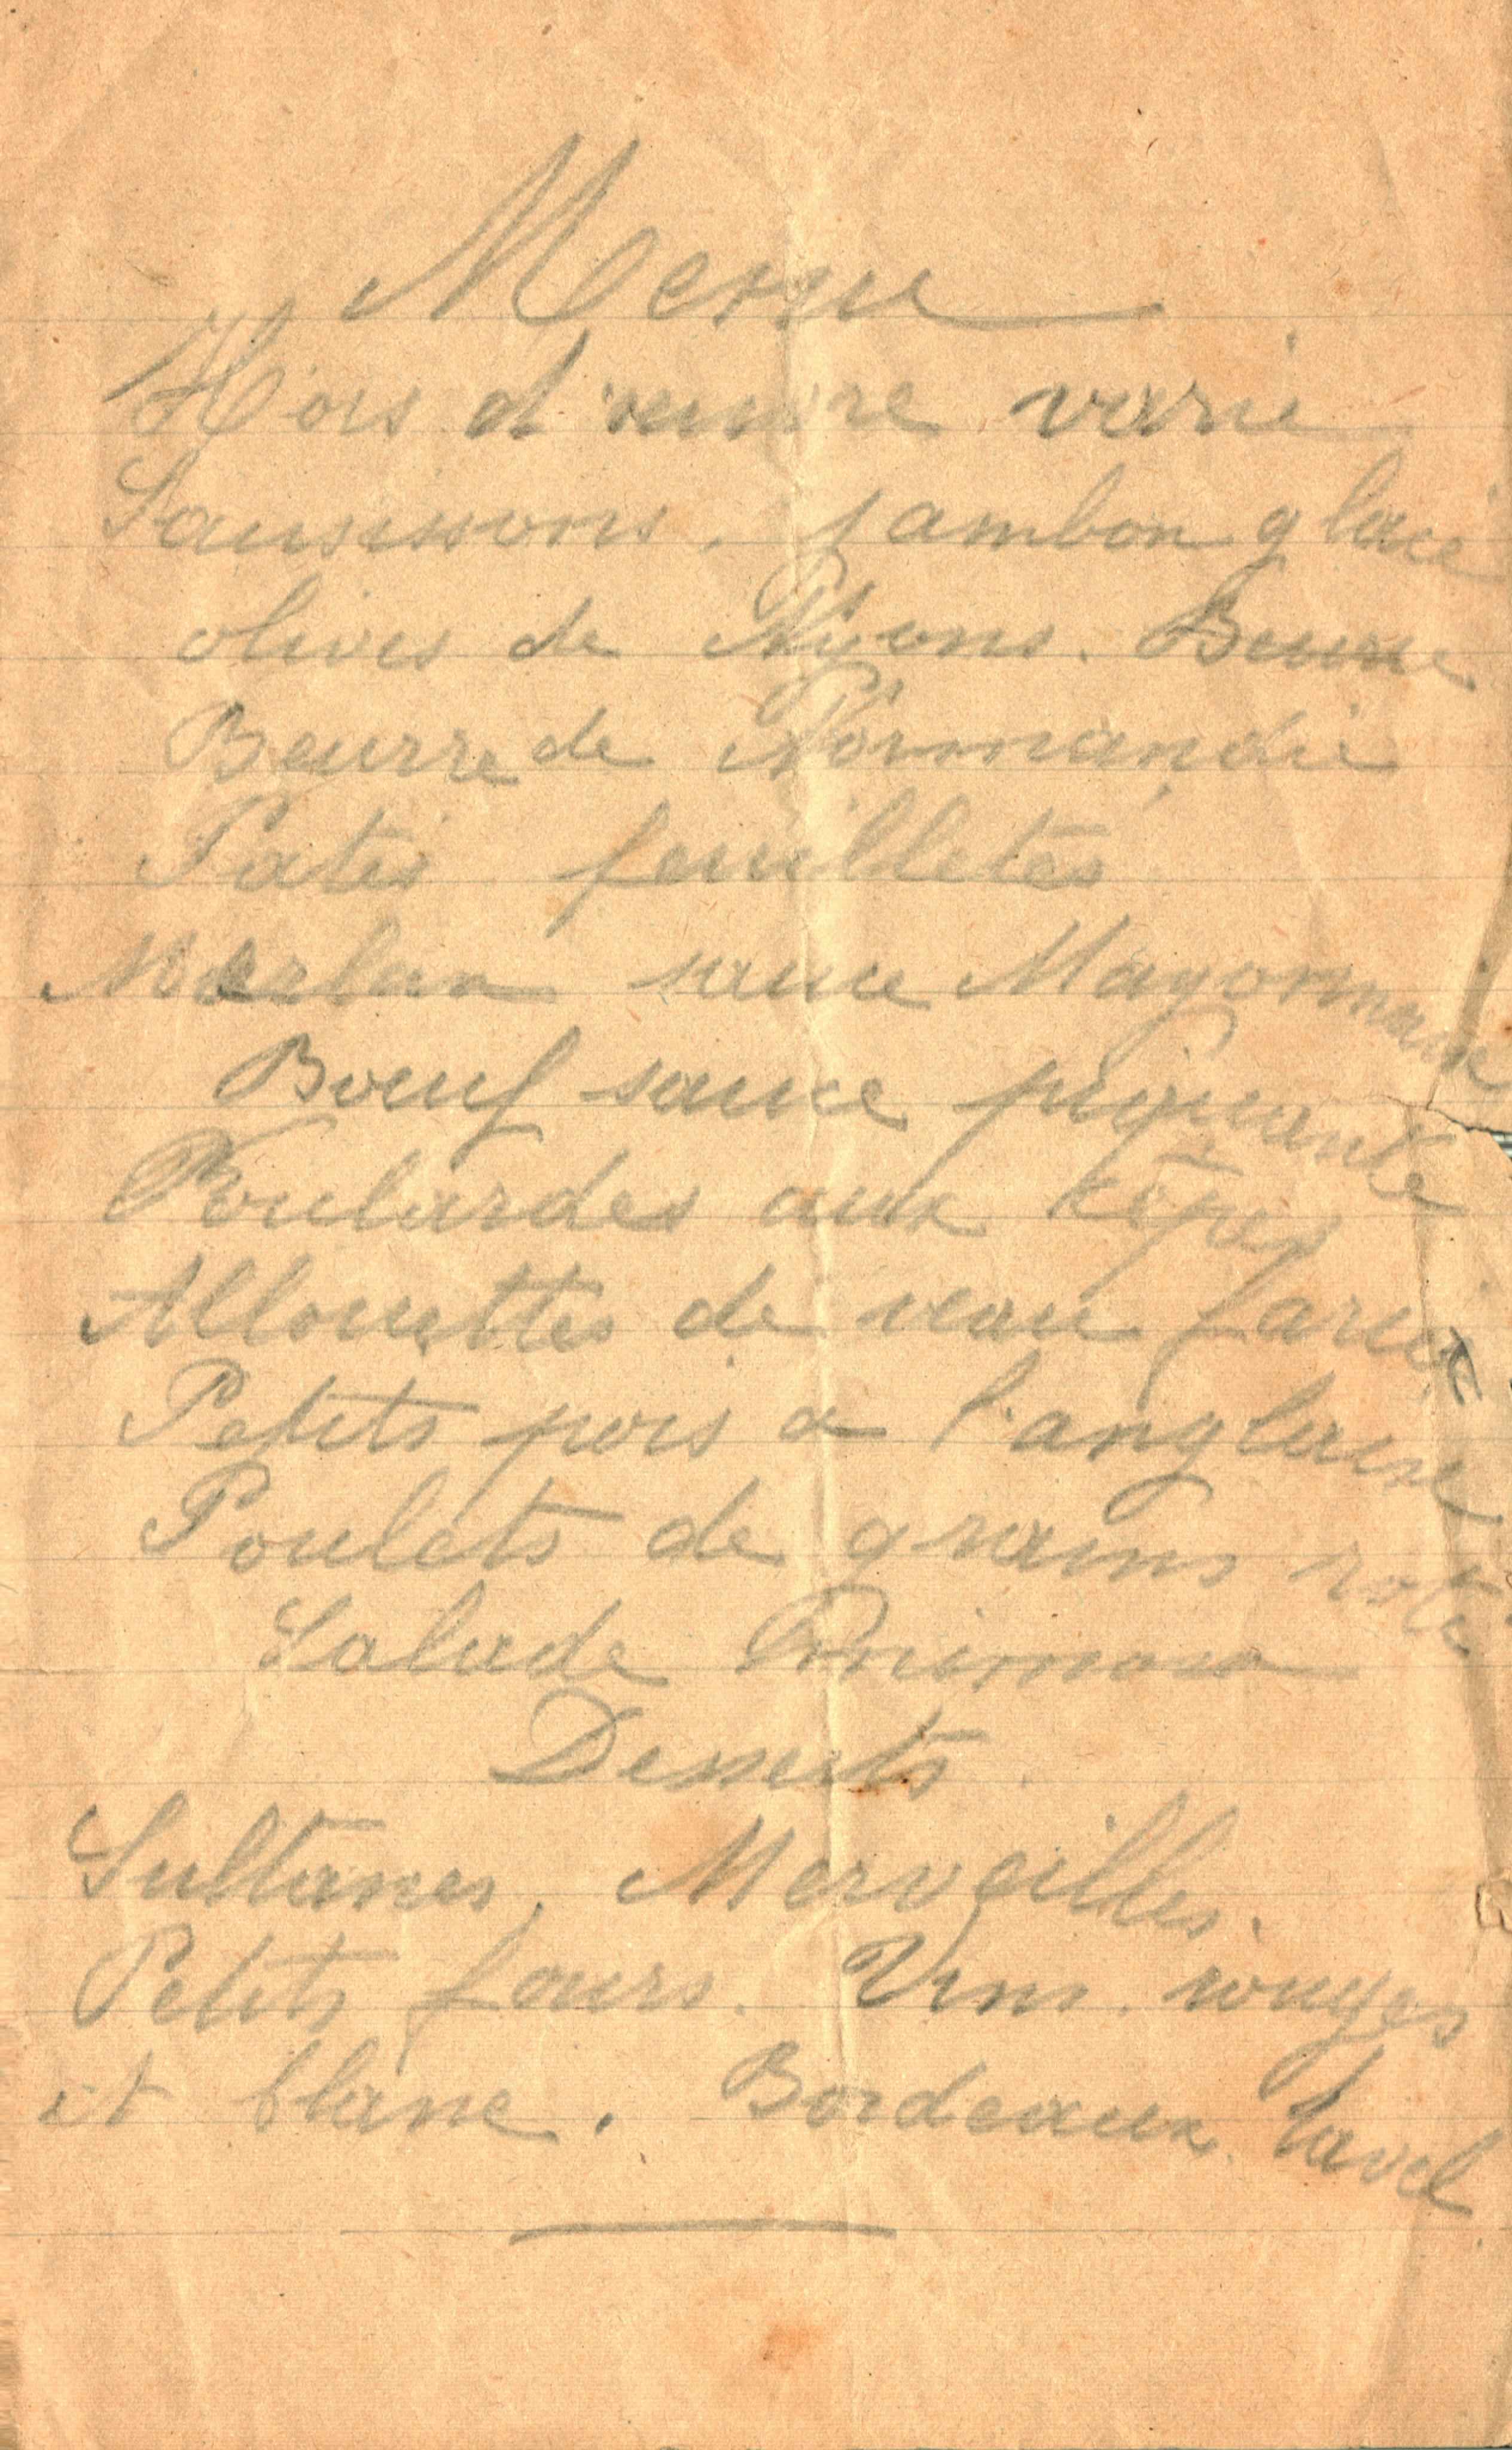 Menu
Hors d'œuvre varié
Saucissons. jambon glacé
olives de Nyons. Beurre
Beurre de Normandie
Patés feuilletés
Merlan sauce Mayonnaise
Bœuf sauce piquante
Poulardes aux kèpes
Allouettes de veau farcie
Petits pois a l'anglaise
Poulets de grains rotis
Salade
Desserts
Sultanes, Merveilles.
Petits fours. Vins rouges
et blanc. Bordeaux. Tavel